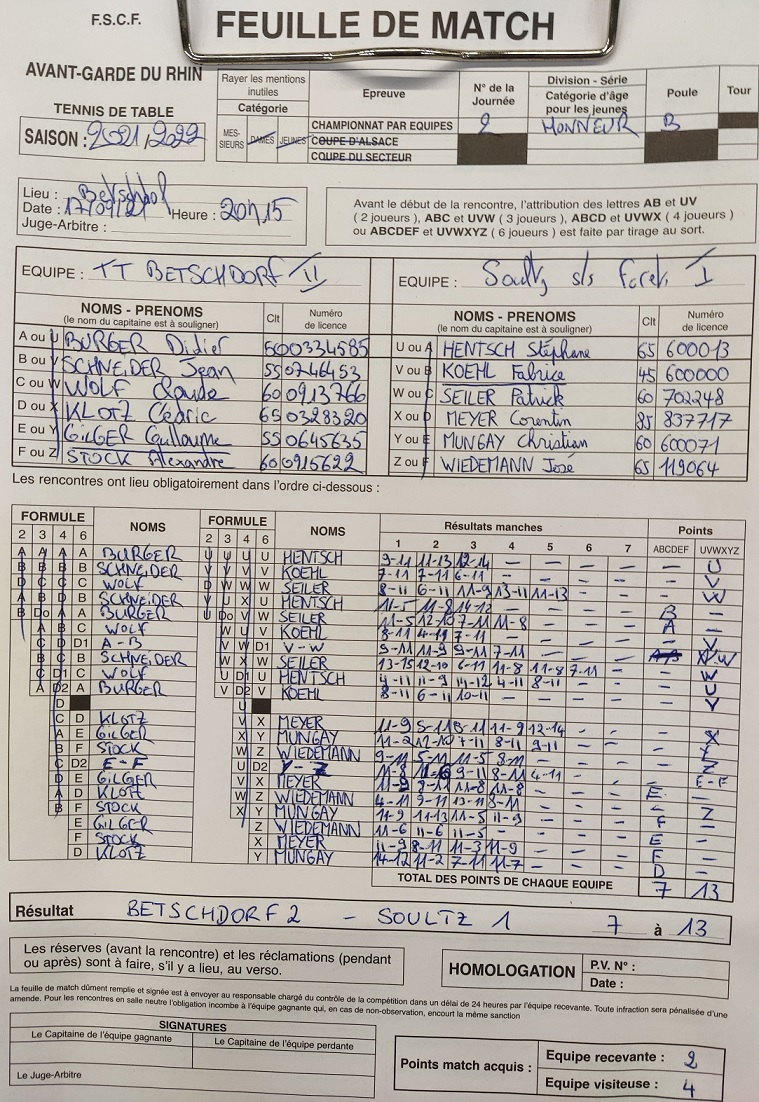 F.S.C.F.
FEUILLE DE MATCH
AVANT-GARDE DU RHIN
TENNIS DE TABLE
SAISON : 2021/2022
Rayer les mentions inutiles
Catégorie
MES-SIEURS DAMES JEUNES
Epreuve
CHAMPIONNAT PAR EQUIPES
COUPE D'ALSACE
COUPE DU SECTEUR
N° de la Journée
2
Division - Série
Catégorie d'âge pour les jeunes
HONNEUR
Poule
B
Tour
Lieu :
Date : 17/09/21 Heure : 20h15
Juge-Arbitre :
Avant le début de la rencontre, l'attribution des lettres AB et UV
( 2 joueurs ), ABC et UVW ( 3 joueurs ), ABCD et UVWX ( 4 joueurs )
ou ABCDEF et UVWXYZ ( 6 joueurs ) est faite par tirage au sort.
EQUIPE : TT BETSCHDORF II
EQUIPE : Soultz s/s Foret I
NOMS - PRENOMS Clt Numéro de licence
(le nom du capitaine est à souligner)
A ou U BURGER Didier 50 0334585
B ou V SCHNEIDER Jean 55 0746453
C ou W WOLF Claude 60 0913766
D ou X KLOTZ Cédric 65 0328320
E ou Y GILGER Guillaume 55 0645635
F ou Z STOCK Alexandre 60 0915622
NOMS - PRENOMS Clt Numéro de licence
(le nom du capitaine est à souligner)
U ou A HENTSCH Stéphane 65 600013
V ou B KOEHL Fabrice 45 600000
W ou C SEILER Patrick 60 702248
X ou D MEYER Corentin 85 837717
Y ou E MUNGAY Christian 60 600071
Z ou F WIEDEMANN José 65 119064
Les rencontres ont lieu obligatoirement dans l'ordre ci-dessous :
FORMULE NOMS FORMULE NOMS Résultats manches Points
2 3 4 6 2 3 4 6 1 2 3 4 5 6 7 ABCDEF UVWXYZ
A BURGER U HENTSCH 9-11 11-13 12-14 - - - - - U
B SCHNEIDER V KOEHL 7-11 7-11 6-11 - - - - - V
C WOLF W SEILER 8-11 6-11 11-9 13-11 11-13 - - - W
B SCHNEIDER U HENTSCH 11-5 11-8 14-12 - - - - B -
A BURGER W SEILER 11-5 12-10 7-11 11-8 - - - A -
C WOLF V KOEHL 8-11 4-11 7-11 - - - - - V
D1 A-B D1 V-W 9-11 11-9 9-11 7-11 - - - V-W
B SCHNEIDER W SEILER 13-15 12-10 6-11 11-8 - W
C WOLF U HENTSCH 4-11 11-9 4-11 - - U
A BURGER V KOEHL 8-11 6-11 10-11 - - - - - Y
D KLOTZ X MEYER 11-9 5-11 11-9 12-14 - - - X
E GILGER Y MUNGAY 11-2 12-10 7-11 8-11 9-11 - - -
F STOCK Z WIEDEMANN 9-11 5-11 11-5 8-11 - - - - Z
D2 E-F D2 Y-Z 11-8 9-11 8-11 4-11 - - E-F
E GILGER X MEYER 11-9 11-8 11-8 - - - E -
D KLOTZ Z WIEDEMANN 4-11 9-11 13-11 8-11 - - - - Z
F STOCK Y MUNGAY 11-9 11-13 11-5 11-9 - - - F -
E GILGER Z WIEDEMANN 11-6 11-6 11-5 - - - - E -
F STOCK X MEYER 11-9 8-11 11-3 11-9 - - - F -
D KLOTZ Y MUNGAY 14-12 11-2 7-11 11-7 - - - D -
TOTAL DES POINTS DE CHAQUE EQUIPE 7 13
Résultat BETSCHDORF 2 - SOULTZ 1 7 à 13
Les réserves (avant la rencontre) et les réclamations (pendant
ou après) sont à faire, s'il y a lieu, au verso.
HOMOLOGATION
P.V. N° :
Date :
La feuille de match dûment remplie et signée est à envoyer au responsable chargé du contrôle de la compétition dans un délai de 24 heures par l'équipe recevante. Toute infraction sera pénalisée d'une
amende. Pour les rencontres en salle neutre l'obligation incombe à l'équipe gagnante qui, en cas de non-observation, encourt la même sanction
SIGNATURES
Le Capitaine de l'équipe gagnante
Le Capitaine de l'équipe perdante
Le Juge-Arbitre
Points match acquis :
Equipe recevante : 2
Equipe visiteuse : 4